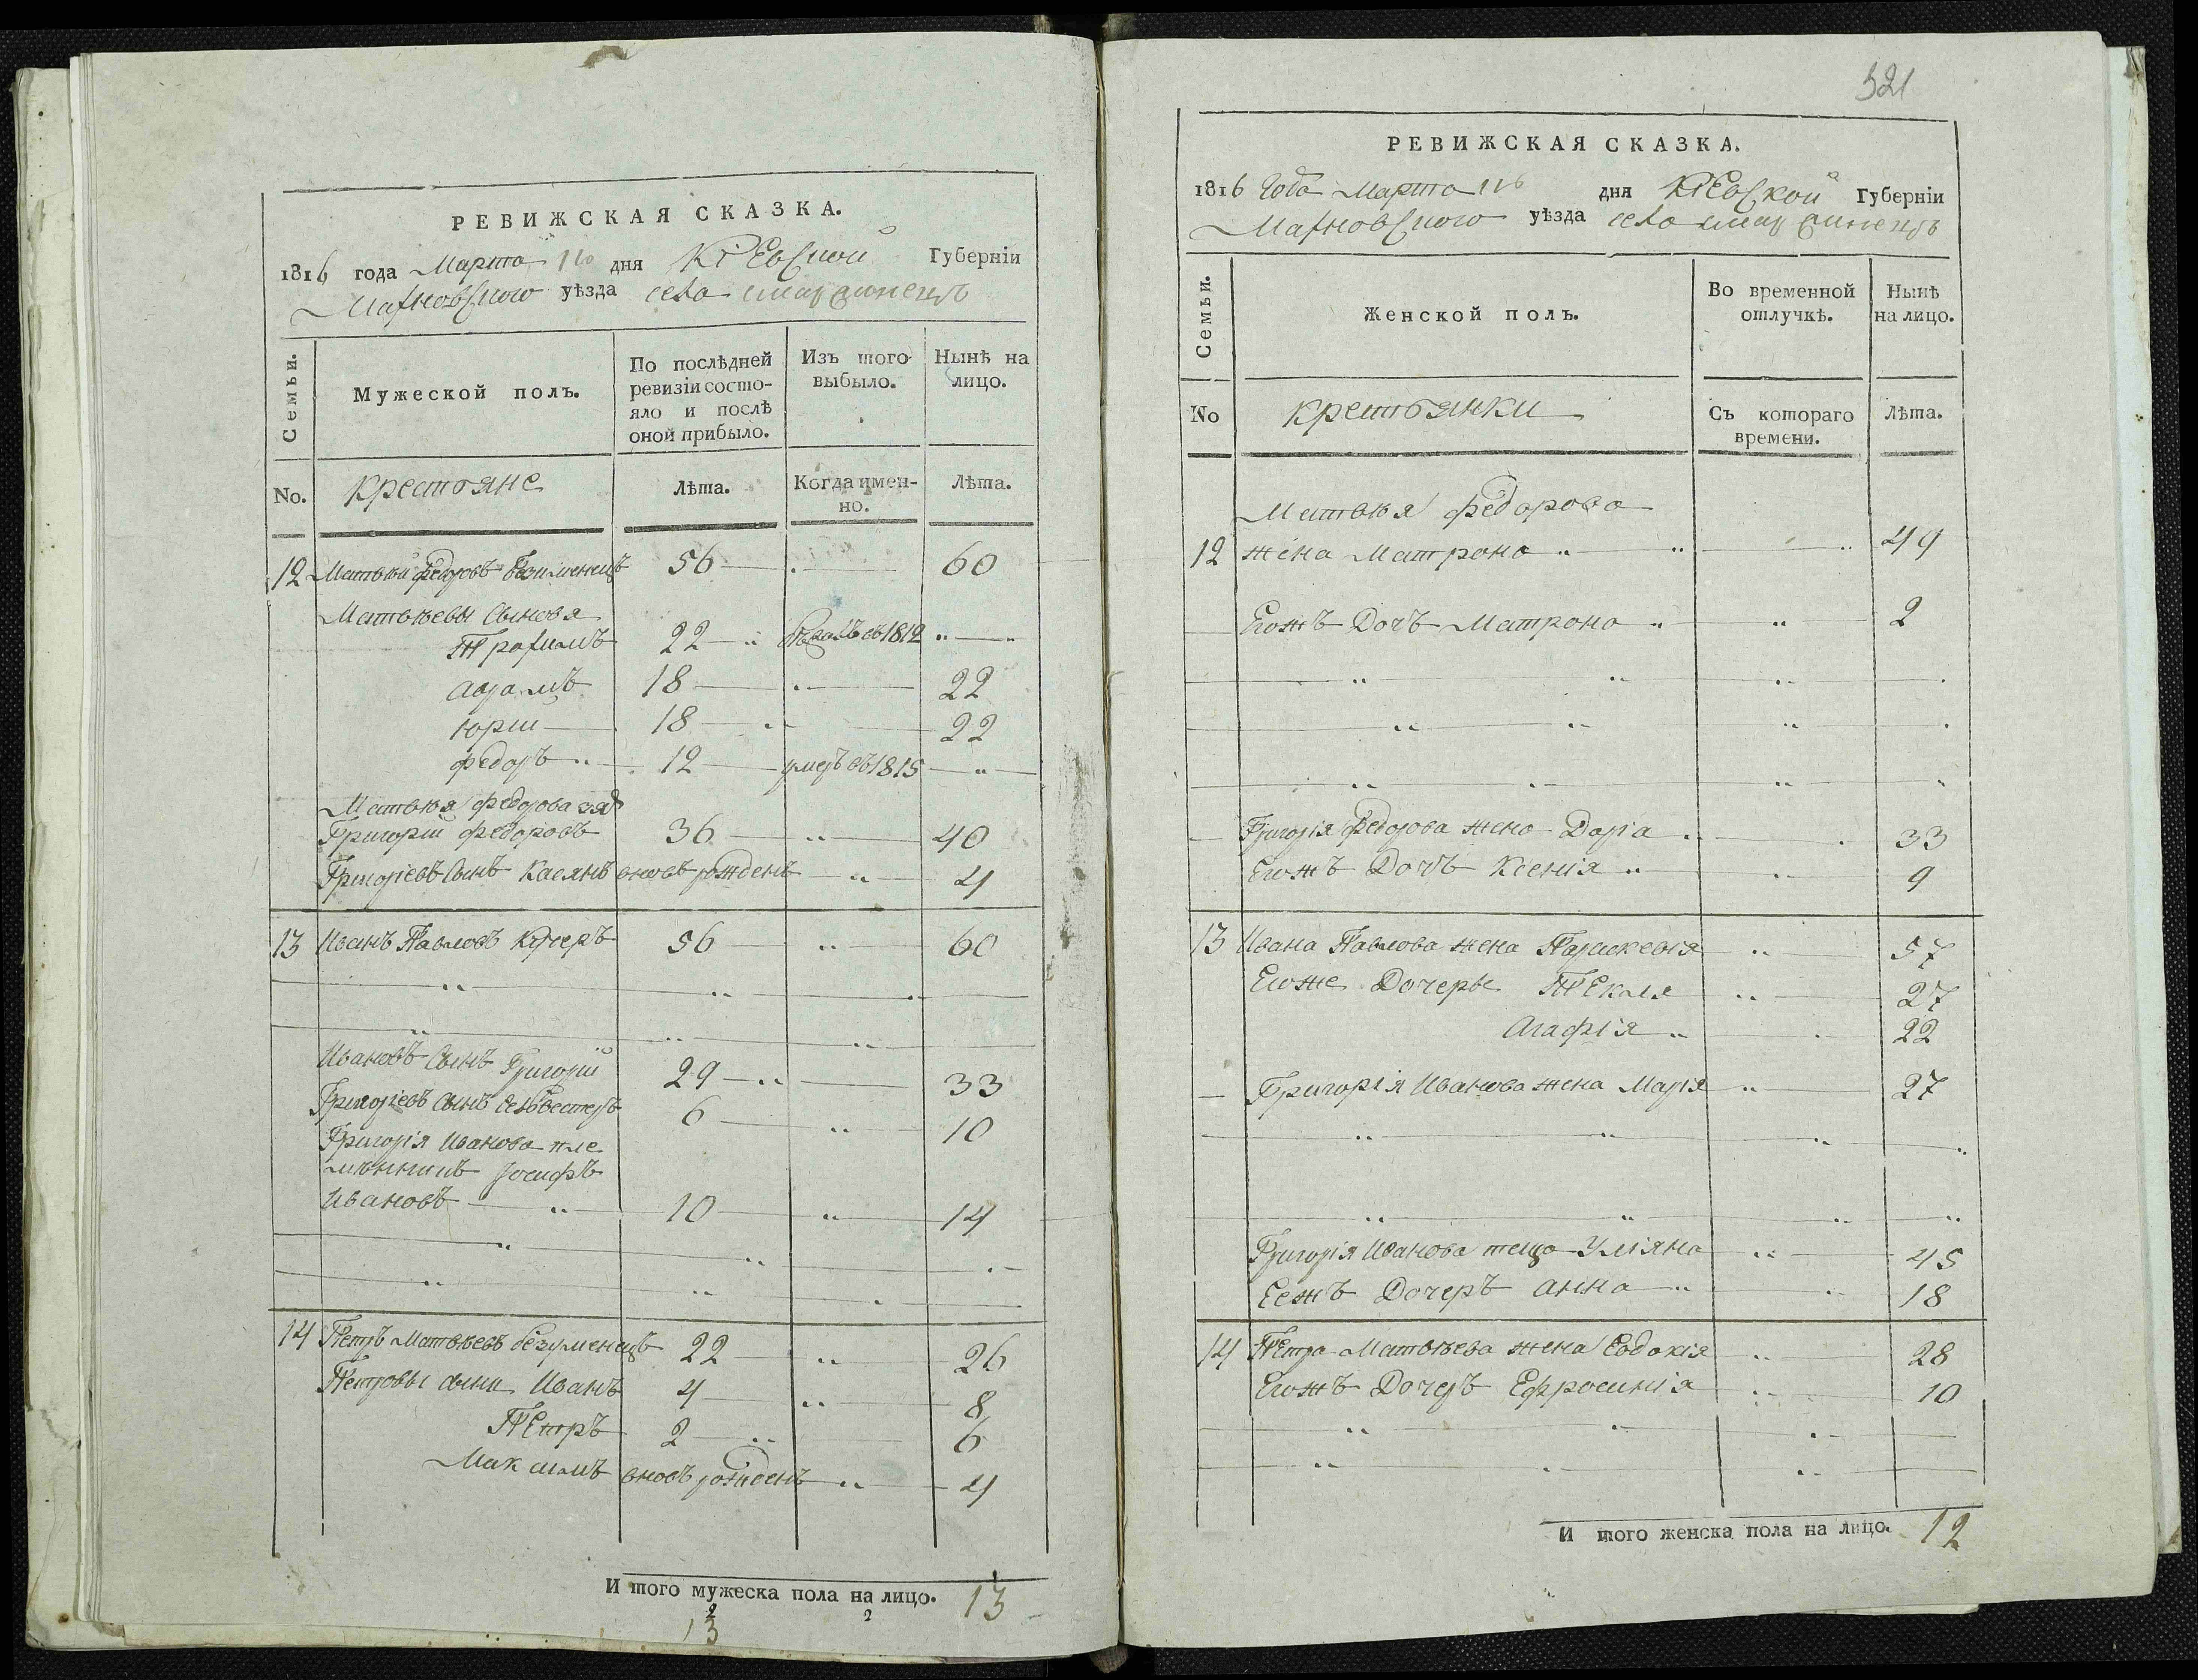 РЕВИЖСКАЯ СКАЗКА.
1816 года Марта дня Кіевской Губерніи
Махновского уѣзда села
Семьи. Мужеской полъ. По послѣдней ревизіи состояло и послѣ оной прибыло. Изъ того выбыло. Нынѣ на лицо.
No. крестьяне Лѣта. Когда именно. Лѣта.
12 Матвѣй Федоровъ 56 60
Матвѣевы сыновья
Трахимъ 22 въ 1812
Аврамъ 18 22
Юрій 18 22
Федоръ 12 умеръ въ 1815
Матвѣя Федорова зять
Григорій Федоровъ 36 40
Григоріевъ сынъ Касянъ вновь рожденъ 4
13 Иванъ Павловъ Кучеръ 56 60
Ивановъ сынъ Григорій 29 33
Григоріевъ сынъ Селвестеръ 6 10
Григорія Иванова пле
мянникъ Іосифъ
Ивановъ 10 14
14 Петръ Матвѣевъ безуменецъ 22 26
Петровы сыны Иванъ 4 8
Петръ 2 6
Максимъ вновь рожденъ 4
И того мужеска пола на лицо. 13
13
321
РЕВИЖСКАЯ СКАЗКА.
1816 года Марта дня Кіевской Губерніи
Махновского уѣзда села
Семьи. Женской полъ. Во временной отлучкѣ. Нынѣ на лицо.
No крестьянки Съ котораго времени. Лѣта.
Матвѣя Федорова
12 жена Матрона 49
Егожъ Дочь Матрона 2
Григорія Федорова жена Дарія 33
Егожъ Дочь Ксенія 9
13 Ивана Павлова жена Параскевія 57
Егоже Дочеры Текля 27
Агафія 22
Григорія Иванова жена Марія 27
Григорія Иванова теща Уліяна 45
Еежъ Дочеръ Анна 18
14 Петра Матвѣева жена Евдокія 28
Егожъ Дочеръ Ефросинія 10
И того женска пола на лицо. 12